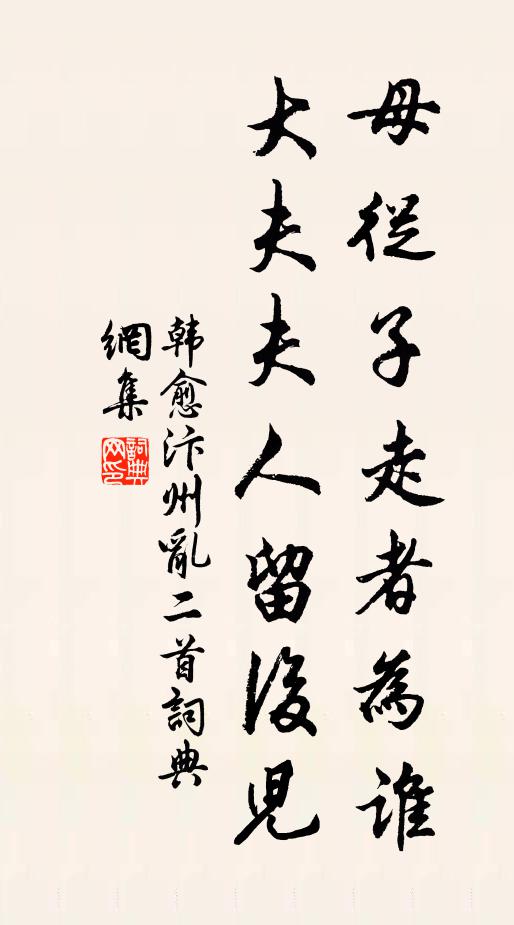 母從子走者為誰
大夫夫人留後兒
韩愈汴州亂二首詞典
網集
詞典網印